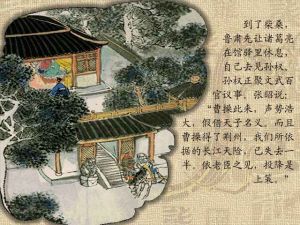 到了柴桑，
鲁肃先让诸葛亮
在馆驿里休息，
自己去见孙权。
孙权正聚文武百
官议事，张昭说：
“曹操此来，声势浩
大，假借天子名义。而且
曹操得了荆州，我们所依
据的长江天险，已失去一
半。依老臣之见，投降是
上策。”